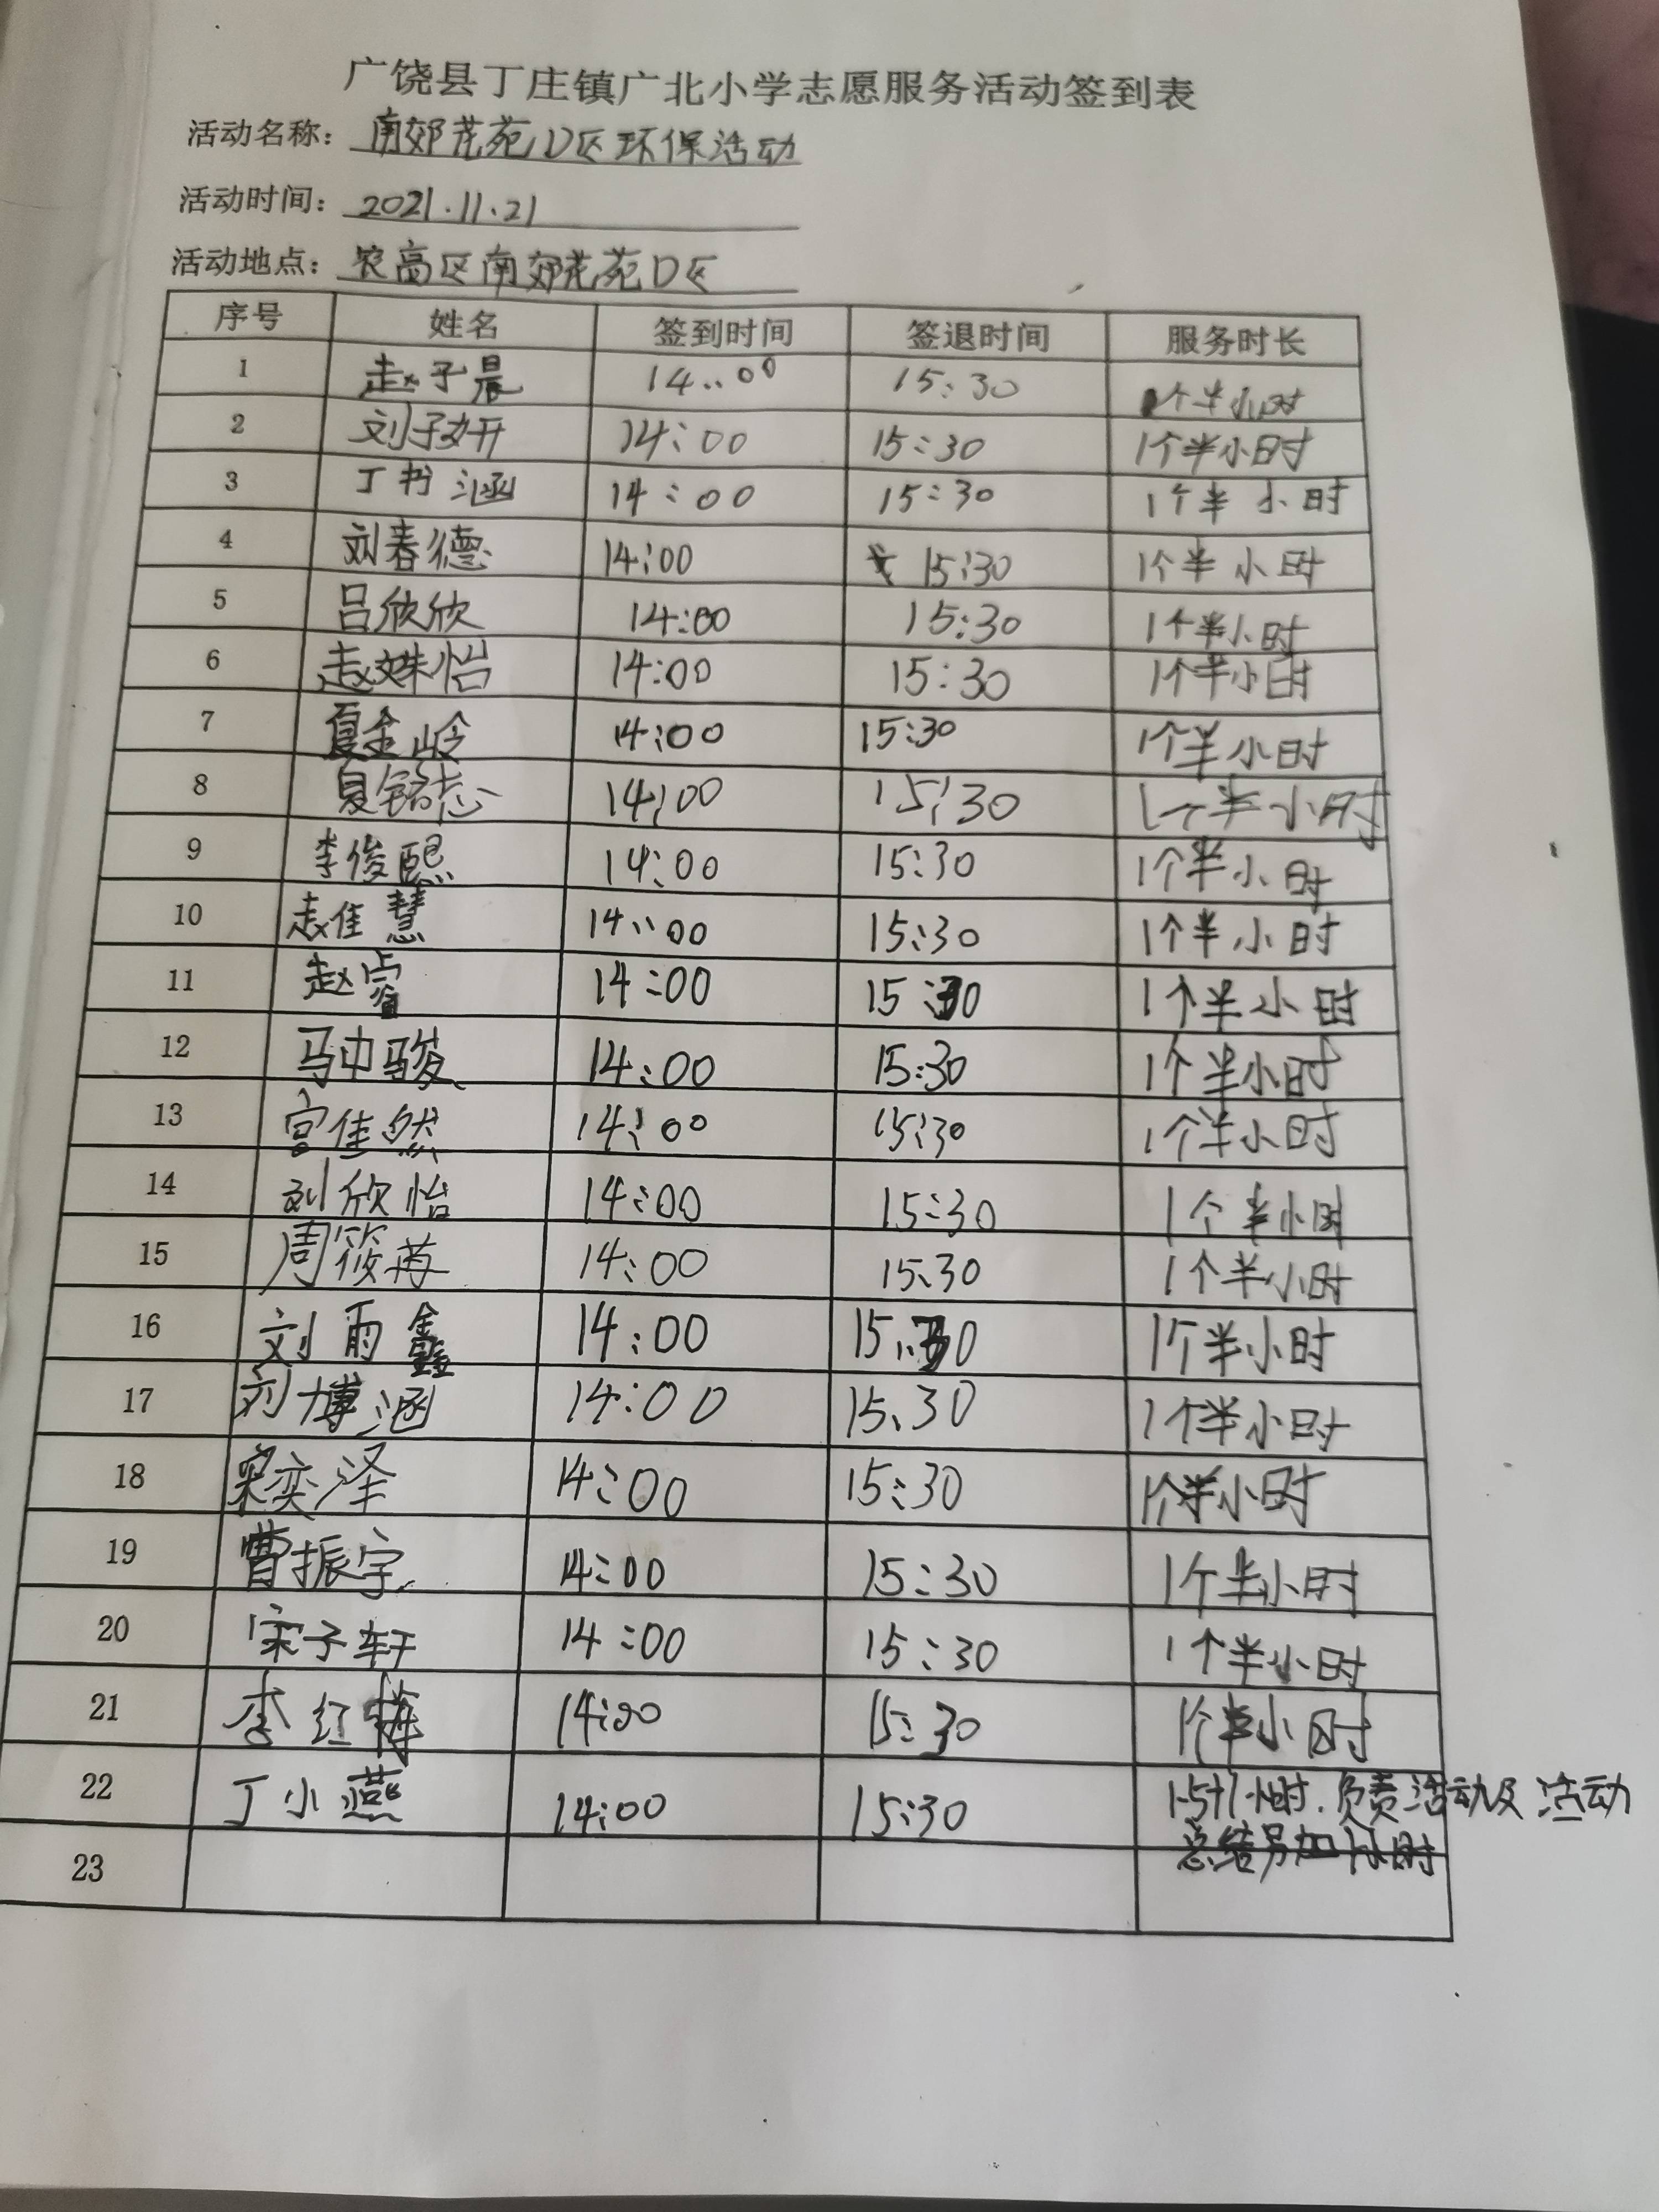 广饶县丁庄镇广北小学志愿服务活动签到表
活动名称：南郊花苑D区环保活动
活动时间：2021.11.21
活动地点：农高区南郊花苑D区
序号 姓名 签到时间 签退时间 服务时长
1 赵子晨 14:00 15:30 1个半小时
2 刘子妍 14:00 15:30 1个半小时
3 丁书涵 14:00 15:30 1个半小时
4 刘春德 14:00 15:30 1个半小时
5 吕欣欣 14:00 15:30 1个半小时
6 赵姝怡 14:00 15:30 1个半小时
7 夏金岭 14:00 15:30 1个半小时
8 夏铭志 14:00 15:30 1个半小时
9 李俊熙 14:00 15:30 1个半小时
10 赵佳慧 14:00 15:30 1个半小时
11 赵睿 14:00 15:30 1个半小时
12 马中骏 14:00 15:30 1个半小时
13 宫佳然 14:00 15:30 1个半小时
14 刘欣怡 14:00 15:30 1个半小时
15 周筱苒 14:00 15:30 1个半小时
16 刘雨鑫 14:00 15:30 1个半小时
17 刘博涵 14:00 15:30 1个半小时
18 宋奕泽 14:00 15:30 1个半小时
19 曹振宇 14:00 15:30 1个半小时
20 宋子轩 14:00 15:30 1个半小时
21 李红梅 14:00 15:30 1个半小时
22 丁小燕 14:00 15:30 1.5+1小时.负责活动及活动
总结另加1小时
23